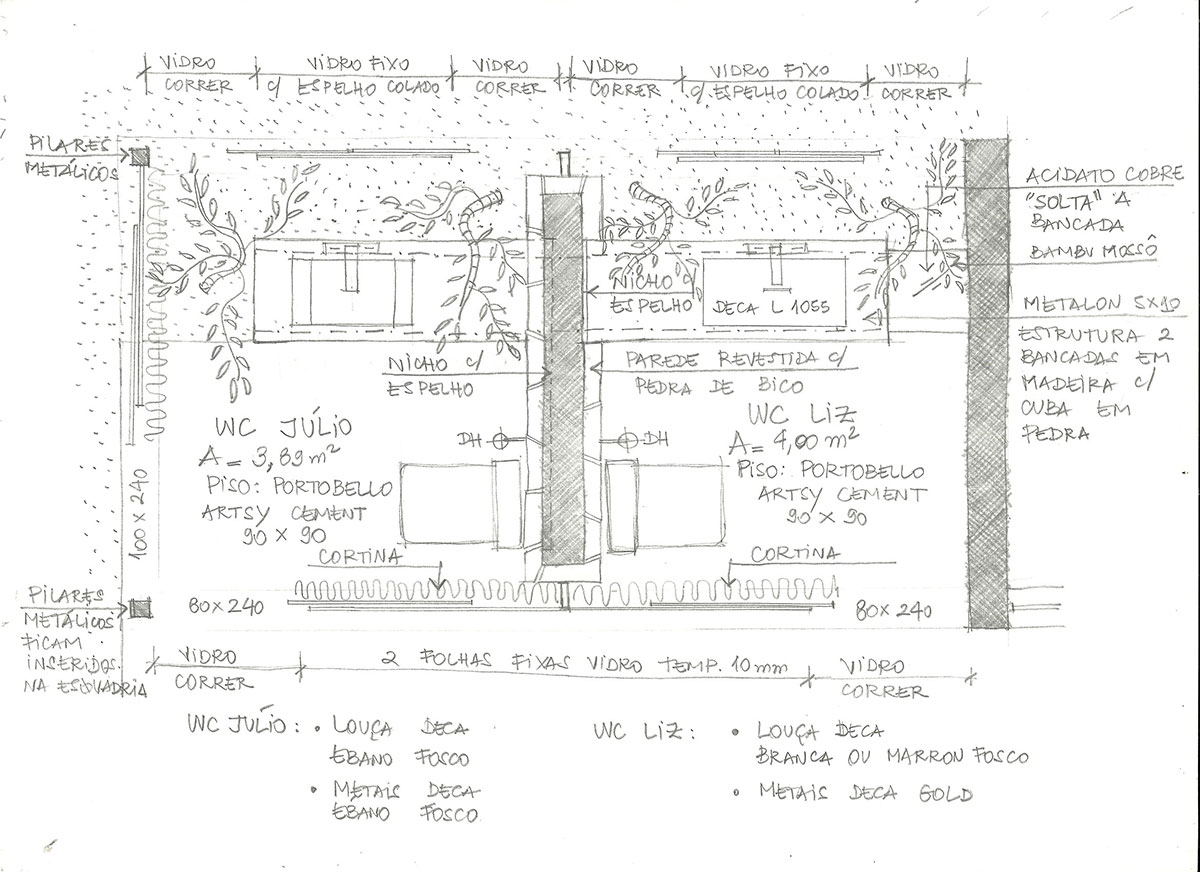 VIDRO
CORRER
VIDRO FIXO
C/ ESPELHO COLADO
VIDRO
CORRER
VIDRO
CORRER
VIDRO FIXO
C/ ESPELHO COLADO
VIDRO
CORRER
PILARES
METÁLICOS
ACIDATO COBRE
"SOLTA" A
BANCADA
BAMBU MOSSÔ
METALON 5X10
ESTRUTURA 2
BANCADAS EM
MADEIRA C/
CUBA EM
PEDRA
NICHO
ESPELHO
DECA L 1055
NICHO C/
ESPELHO
PAREDE REVESTIDA C/
PEDRA DE BICO
WC JÚLIO
A = 3,89 m²
PISO: PORTOBELLO
ARTSY CEMENT
90 X 90
DH
DH
WC LIZ
A = 4,00 m²
PISO: PORTOBELLO
ARTSY CEMENT
90 X 90
100 X 240
CORTINA
CORTINA
PILARES
METÁLICOS
FICAM
INSERIDOS
NA ESQUADRIA
80 X 240
80 X 240
VIDRO
CORRER
2 FOLHAS FIXAS VIDRO TEMP. 10mm
VIDRO
CORRER
WC JÚLIO: • LOUÇA DECA
ÉBANO FOSCO
• METAIS DECA
ÉBANO FOSCO
WC LIZ: • LOUÇA DECA
BRANCA OU MARRON FOSCO
• METAIS DECA GOLD